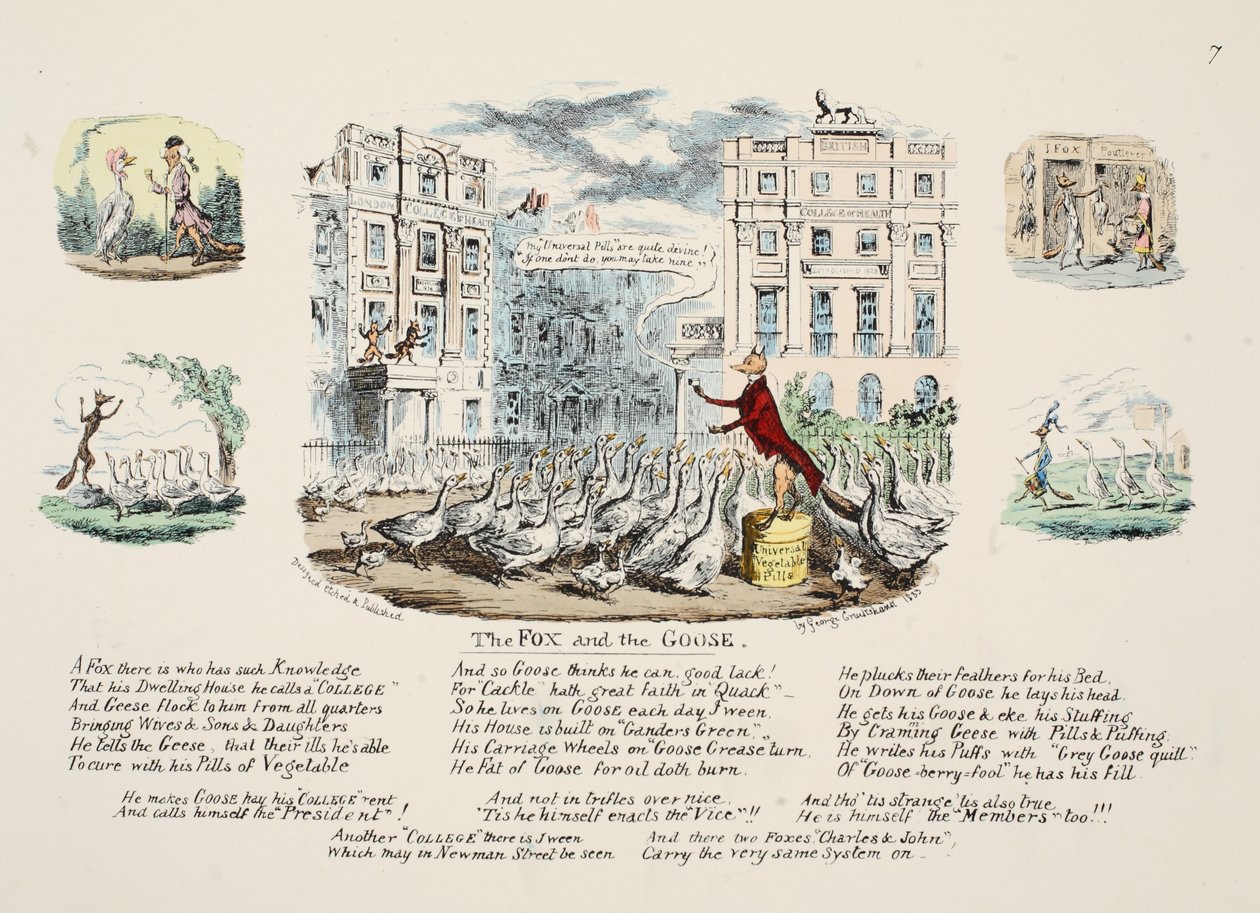 7
I FOX Poulterer
LONDON COLLEGE of HEALTH
BRITISH
COLLEGE OF HEALTH
My "Universal Pills" are quite devine!
"If one dont do, you may take nine"
Universal
Vegetable
Pills
Designed Etched & Published
by George Cruikshank 1833
The FOX and the GOOSE.
A Fox there is who has such Knowledge
That his Dwelling House he calls a "COLLEGE"
And Geese flock to him from all quarters
Bringing Wives & Sons & Daughters
He tells the Geese, that their ills he's able
To cure with his Pills of Vegetable
And so Goose thinks he can, good lack!
For "Cackle" hath great faith in "Quack" –
So he lives on GOOSE each day I ween,
His House is built on "Ganders Green",
His Carriage Wheels on "Goose Grease turn,
He Fat of Goose for oil doth burn.
He plucks their feathers for his Bed,
On Down of Goose he lays his head,
He gets his Goose & eke his Stuffing
By Craming Geese with Pills & Puffing;
He writes his Puffs with "Grey Goose quill";
Of "Goose=berry=fool" he has his fill.
He makes GOOSE pay his "COLLEGE" rent
And calls himself the "President"!
And not in trifles over nice,
'Tis he himself enacts the "Vice"!!
And tho' 'tis strange 'tis also true
He is himself the "Members" too!!!
Another "COLLEGE" there is I ween
Which may in Newman Street be seen
And there two Foxes, "Charles & John",
Carry the very same System on –